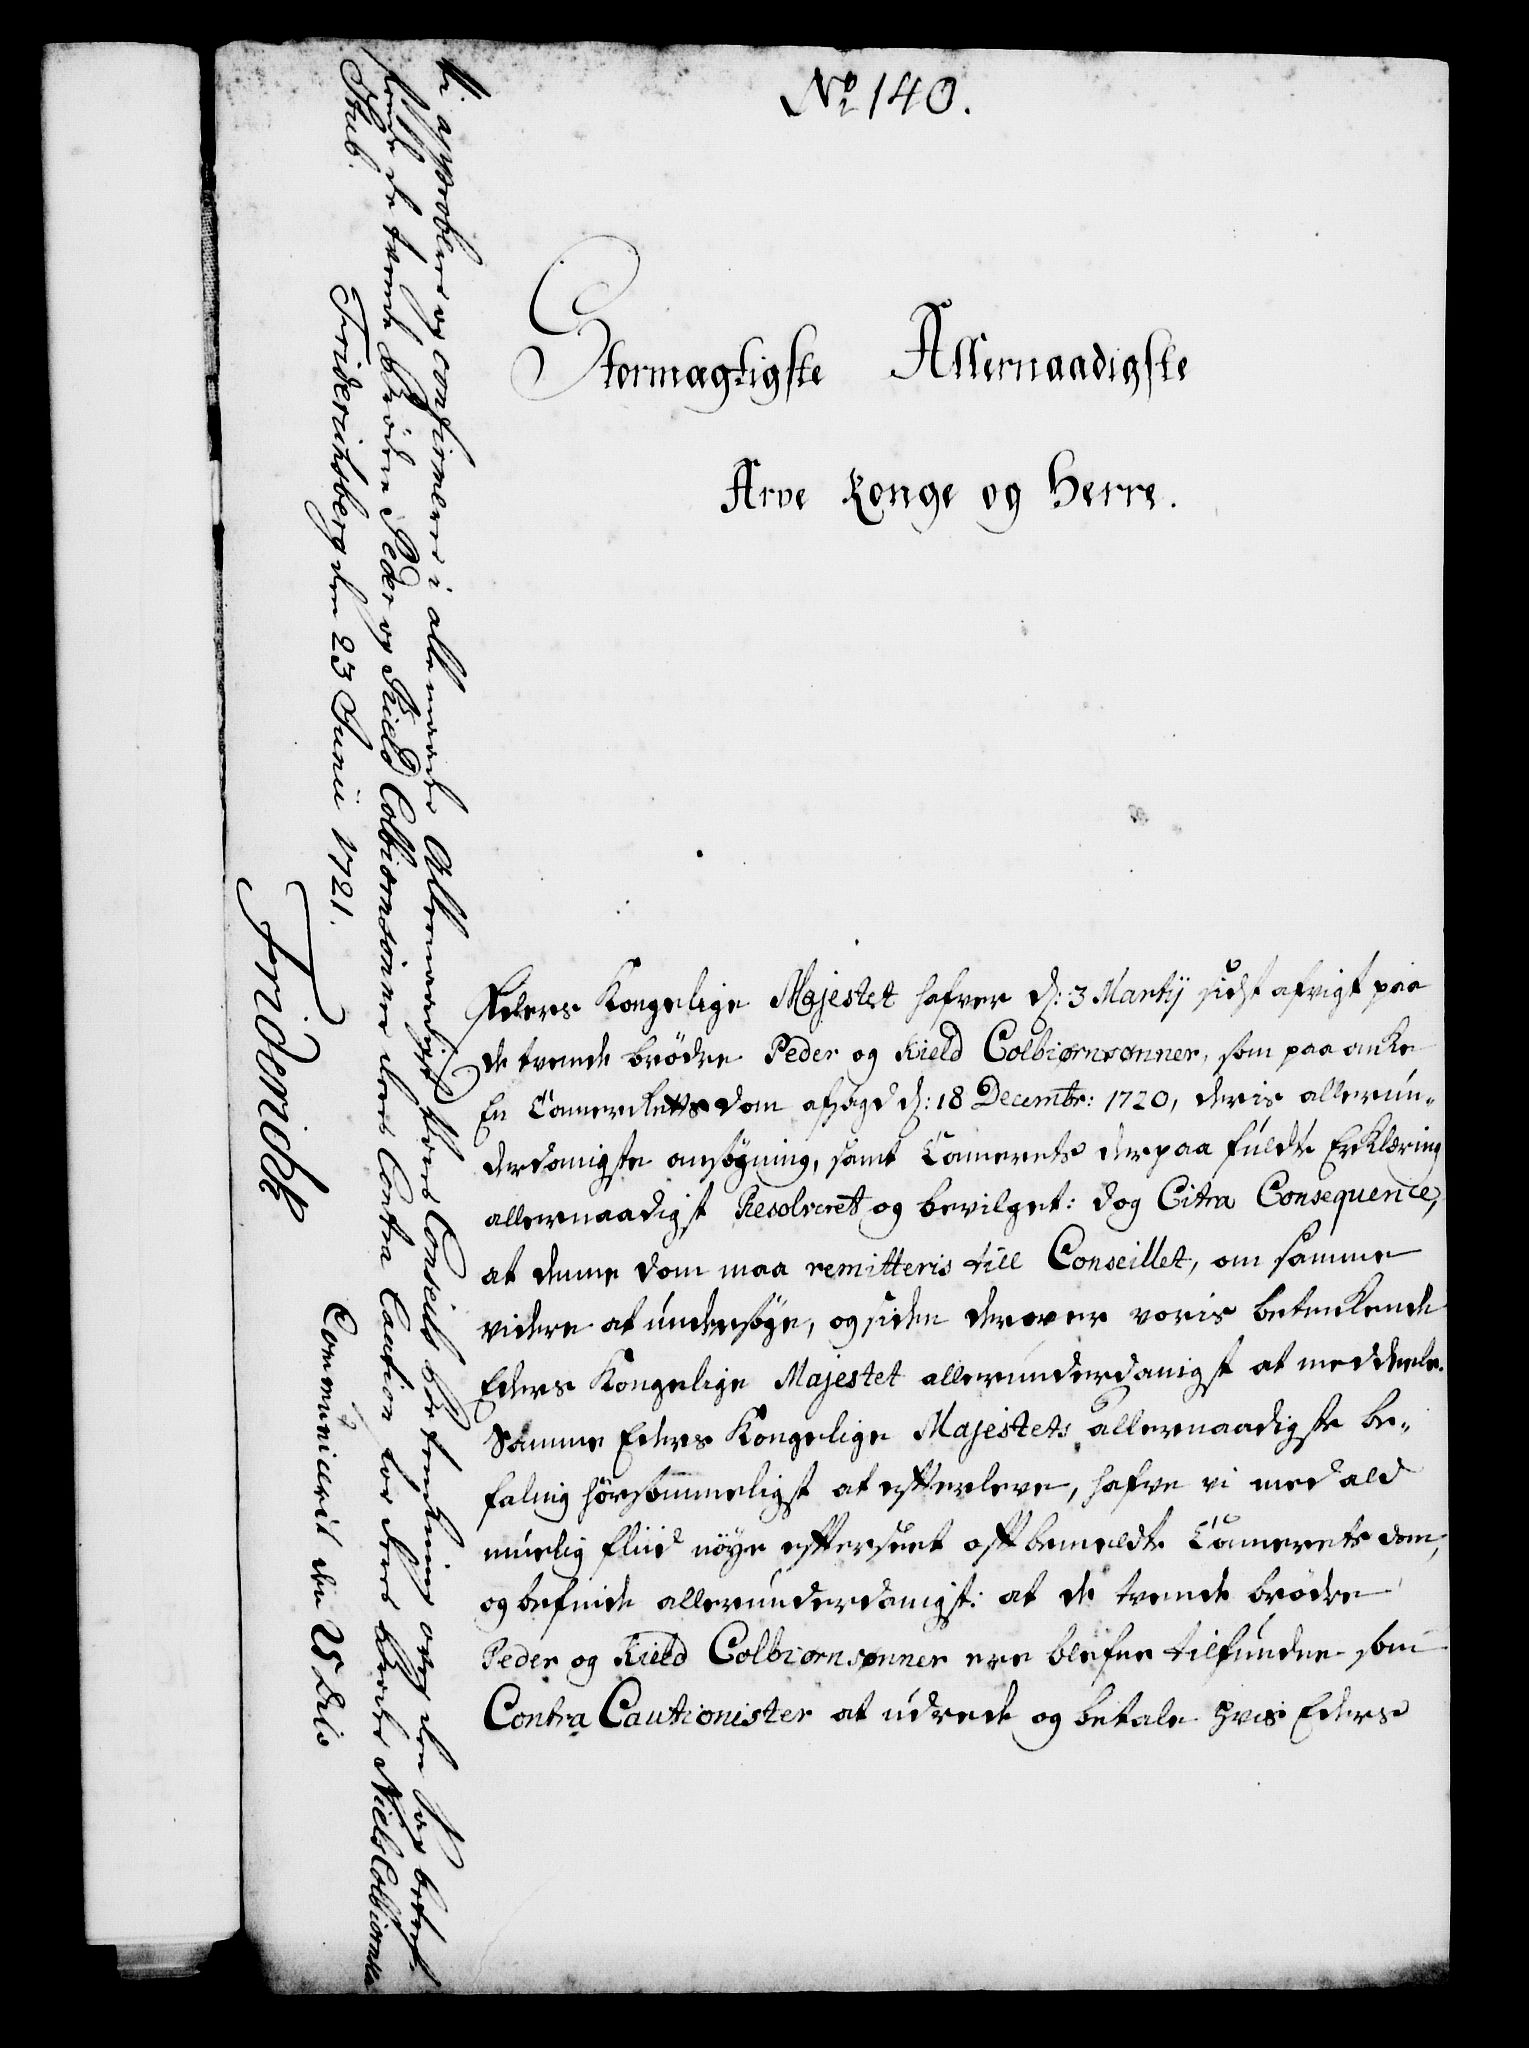 No 140.
Stormægtigste Allernaadigste
Arve Konge og Herre.
Eders Kongelige Majestet hafver d: 3 Martij sidst afvigt paa
de tvende brödre Peder og Kield Colbiørnsønner, som paa anke
En Camer Retts dom afsagd d: 18 Decembr: 1720, deris allerun-
derdanigste ansøgning, samt Camerets derpaa fuldte Erklæring
allernaadigst Resolveret og bevilget: dog Citra Consequence,
at denne dom maa remitteris till Conseillet, om samme
videre at undersøge, og siden derover voris betenkende
Eders Kongelige Majestet allerunderdanigst at meddeele.
Samme Eders Kongelige Majestets allernaadigste be-
faling hörsommeligst at efterleve, hafve vi med ald
muelig fliid nöye efterseet oftbemeldte Camerets dom,
og befinde allerunderdanigst: at de tvende brödre
Peder og Kield Colbiørnsønner ere blefne tilfundne som
Contra Cautionister at udrede og betale hvis Eders
Vi approberer og confirmerer i alle maader Allernaadigst dette Conseils betenkning over den Sag betref-
fende de tvende Brödre Peder og Kield Colbiornsönner deres Contra Caution for deres broder Niels Colbiornsen
Stub. Friderichsberg den 23 Junii 1721.
Friderich
Communicerit den 25 dito